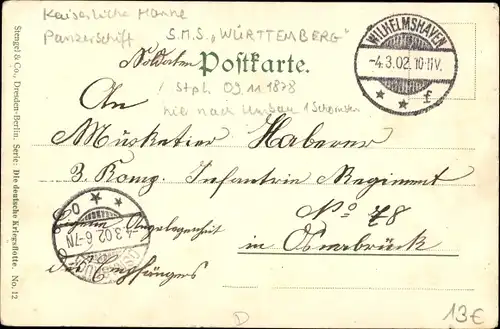 Kaiserliche Marine
Panzerschiff S.M.S. „WÜRTTEMBERG“
Soldaten Postkarte.
Stph. 09.11.1878
nie nach Umbau 1 Schornstein
WILHELMSHAVEN
-4.3.02.10-11V.
* * f
An
Musketier Haberer
3. Komp. Infantrie Regiment
No 78
in Osnabrück
Eigene Angelegenheit
des Empfängers
4.3.02.6-7N
Stengel & Co., Dresden-Berlin. Serie: Die deutsche Kriegsflotte. No. 12
D
13€